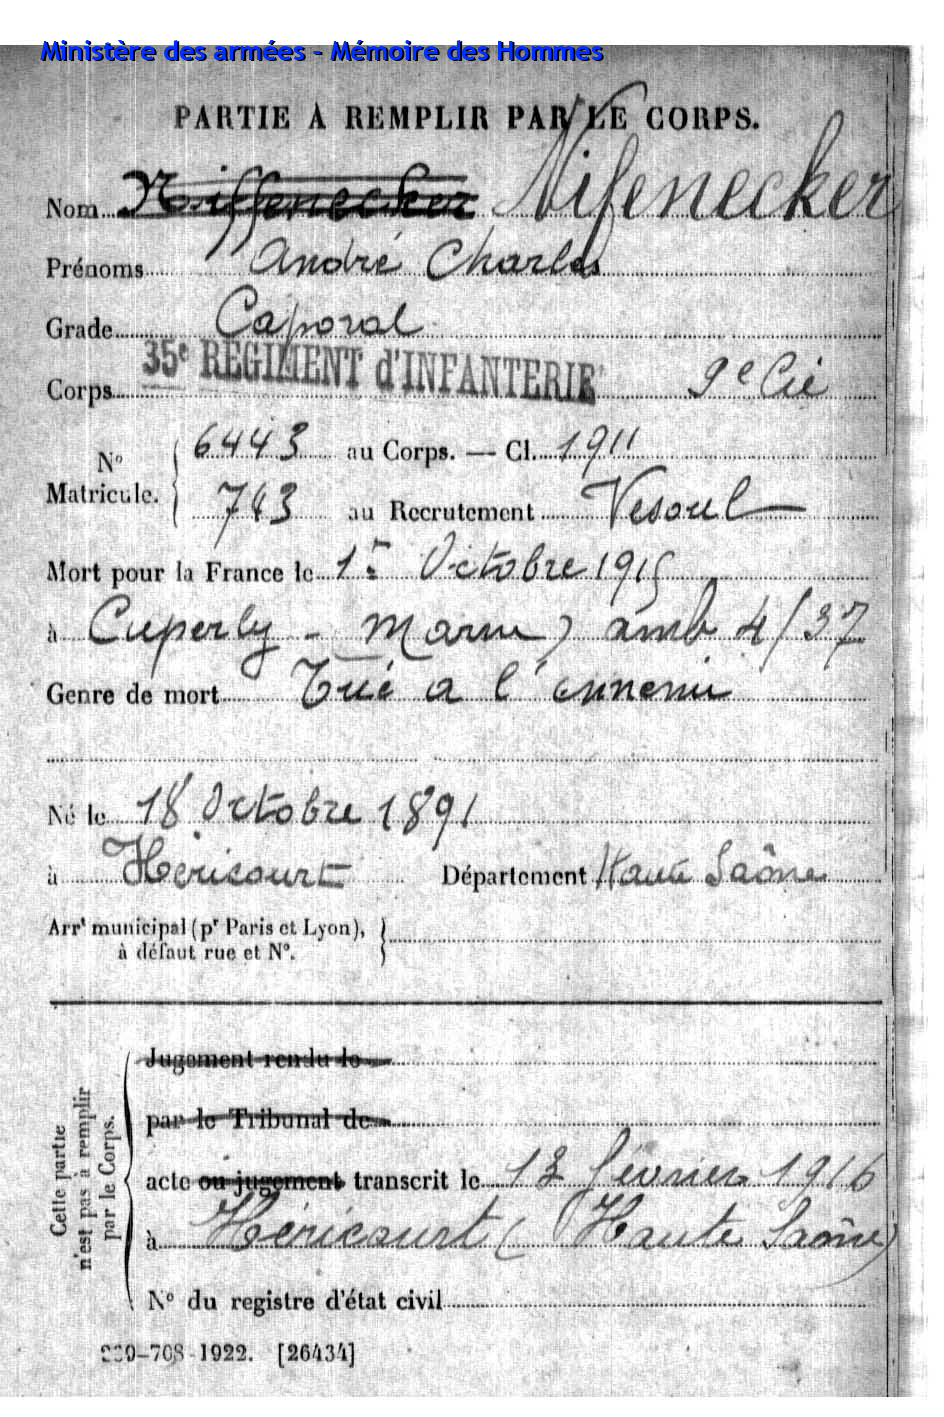 Ministère des armées - Mémoire des Hommes
PARTIE À REMPLIR PAR LE CORPS.
Nom Niffenecker Nifenecker
Prénoms André Charles
Grade Caporal
Corps 35e RÉGIMENT d'INFANTERIE 9e Cie
No Matricule. 6443 au Corps. — Cl. 1911
743 au Recrutement Vesoul
Mort pour la France le 1er Octobre 1915
à Cuperly - Marne) amb 4/37
Genre de mort Tué a l'ennemi
Né le 18 Octobre 1891
à Héricourt Département Haute Saône
Arrt municipal (pr Paris et Lyon),
à défaut rue et No.
Cette partie
n'est pas à remplir
par le Corps.
Jugement rendu le
par le Tribunal de
acte ou jugement transcrit le 13 février 1916
à Héricourt (Haute Saône)
No du registre d'état civil
-708-1922. [26434]